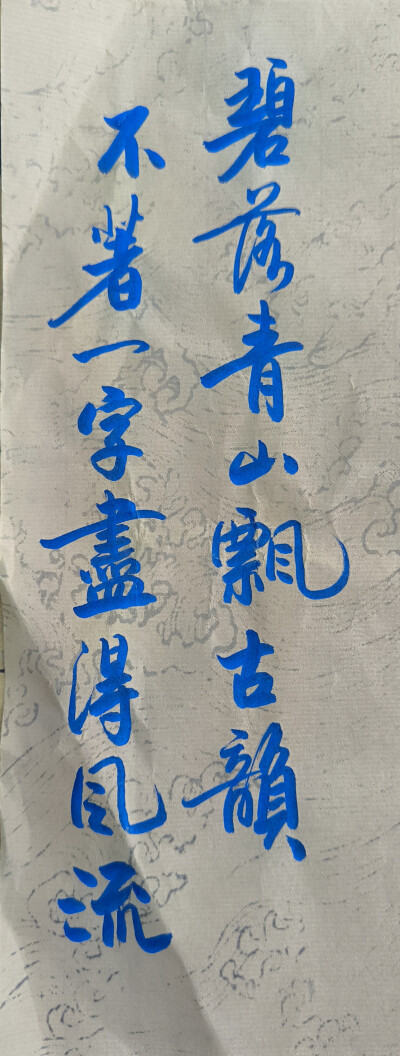 碧落青山飄古韻
不著一字盡得风流